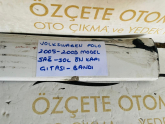 ÖZÇETE OTO
OTO ÇIKMA ve YEDEK
VOLKSWAGEN POLO
2005-2008 MODEL
SAĞ-SOL ÖN KAPI
ÇITASI-BANDI
ÖZÇETE OTO